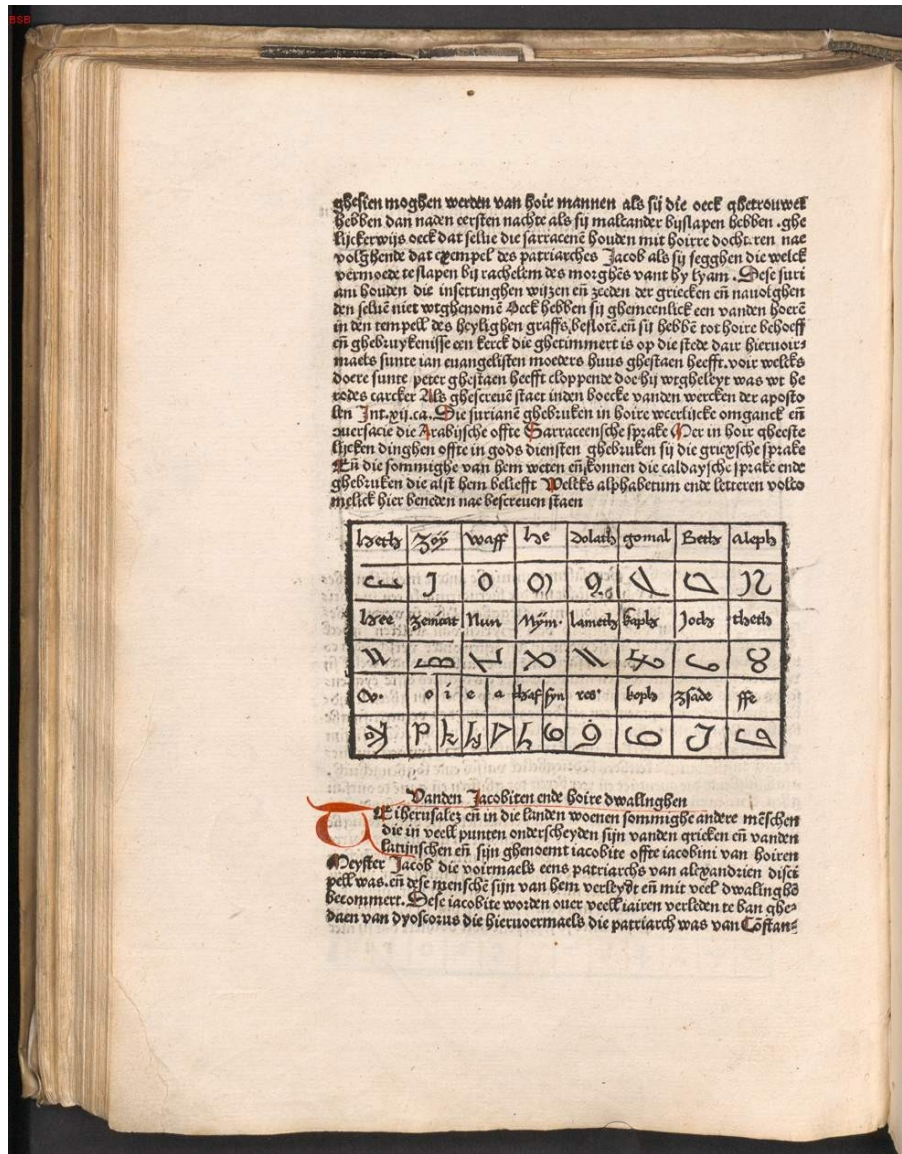 BSB
ghesien moghen werden van hoir mannen als sij die oeck ghetrouwet
hebben dan naden eersten nachte als sij malcander bijslapen hebben .ghe
lijckerwijs oeck dat selue die sarracenē houden mit hoirre docht.ren nae
volghende dat exempel des patriarches Jacob als sij segghen die welck
vermoede te slapen bij rachelem des morghēs vant hy lyam . Dese suri
ani houden die insettinghen wijzen eñ zeeden der griecken eñ nauolghen
den seluē niet wtghenomē Oeck hebben sij ghemeenlick een vanden hoerē
in den tempell des heylighen graffs,beslotē.eñ sij hebbē tot hoire behoeff
eñ ghebruykenisse een kerck die ghetimmert is op die stede dair hieruoir⸗
maels sunte ian euangelisten moeders huus ghestaen heefft.voir welcks
doere sunte peter ghestaen heefft cloppende doe hij wtgheleyt was wt he
rodes carcker Als ghescreuē staet inden boecke vanden wercken der aposto
len Int.xij.ca. Die surianē ghebruken in hoire weerlijcke omganck eñ
ɔuersacie die Arabijsche offte Sarraceensche sprake Mer in hoir gheeste
lijcken dinghen offte in gods diensten ghebruken sij die griexsche sprake
Eñ die sommighe van hem weten eñ konnen die caldaysche sprake ende
ghebruken die alst hem beliefft Welcks alphabetum ende letteren volco
melick hier beneden nae bescreuen staen
heth zoÿ waff he dolath gomal Beth aleph
hee zemcat Nun Mȳm. lameth kaph Joch theth
o i e a thaf syn res' koph zsade ffe
Vanden Jacobiten ende hoire dwalinghen
TE iherusalez eñ in die landen woenen sommighe andere mēschen
die in veell punten onderscheyden sijn vanden griecken eñ vanden
latijnschen eñ sijn ghenoemt iacobite offte iacobini van hoiren
Meyster Jacob die voirmaels eens patriarchs van alexandrien disci
pell was.eñ dese menschē sijn van hem verleydt eñ mit veel dwalinghē
becommert. Dese iacobite worden ouer veell iairen verleden te ban ghe⸗
daen van dyoscorus die hieruoermaels die patriarch was van Cōstan⸗